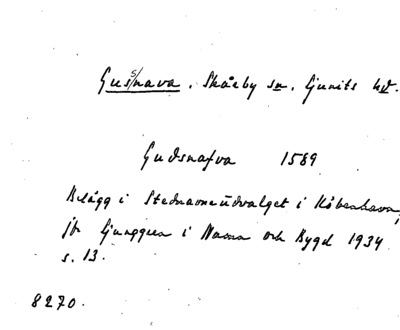 Gussnava. Skårby sn. Ljunits hd.
Gudsnafva 1589
Belägg i Stednavneudvalget i København,
jfr Ljunggren i Namn och Bygd 1934
s. 13.
8270.